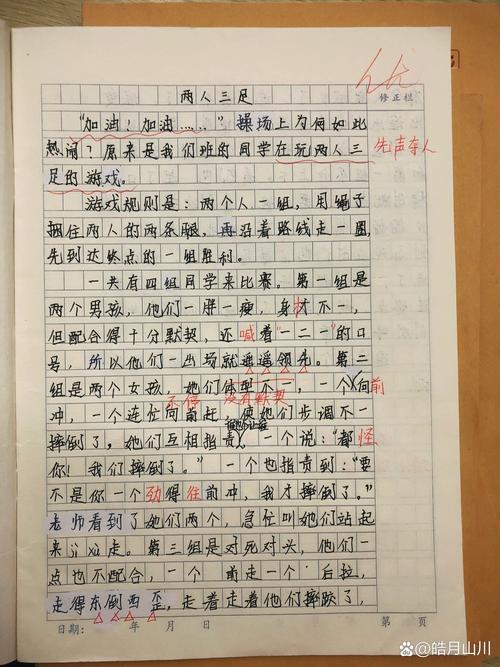 优
修正栏
两人三足
“加油！加油……”操场上为何如此
热闹？原来是我们班的同学在玩两人三
先声夺人
足的游戏。
游戏规则是：两个人一组，用绳子
捆住两人的两条腿，再沿着路线走一圈，
先到达终点的一组胜利。
一共有四组同学来比赛。第一组是
两个男孩，他们一胖一瘦，身材不一，
但配合得十分默契，还喊着“一二一”的口
号，所以他们一出场就遥遥领先。第二
组是两个女孩，她们体型不一，一个向前
不停 没有默契
冲，一个连忙向前赶，使她们步调不一
摔倒了，她们互相指责，一个说：“都怪
你！我们摔倒了。”一个也指责到：“要
不是你一个劲得往前冲，我才摔倒了。”
老师看到了她们两个，急忙叫她们站起
来 走。第三组是对死对头，他们一
点也不配合，一个 前走一个 后拉，
走得东倒西歪，走着走着他们摔跤了，
日期： 年 月 日 第 页
@皓月山川